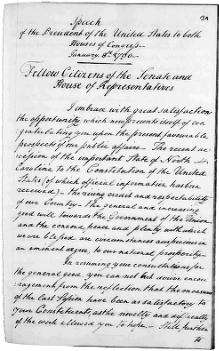 Speech
of the President of the United States to both
Houses of Congress
January 8th. 1790.
Fellow Citizens of the Senate and
House of Representatives
I embrace with great satisfaction
the opportunity which now presents itself, of con-
gratulating you upon the present favourable
prospects of our public affairs. The recent ac-
cession of the important State of North
Carolina to the Constitution of the United
States (of which official information has been
received), the rising credit and respectability
of our Country, the general and increasing
good will towards the Government of the Union
and the concord, peace and plenty, with which
we are blessed, are circumstances auspicious in
an eminent degree, to our national prosperity.
In resuming your consultations for
the general good, you can not but derive encou-
ragement from the reflection that the measures
of the last Session have been as satisfactory to
your Constituents as the novelty and difficulty
of the work allowed you to hope. Still further